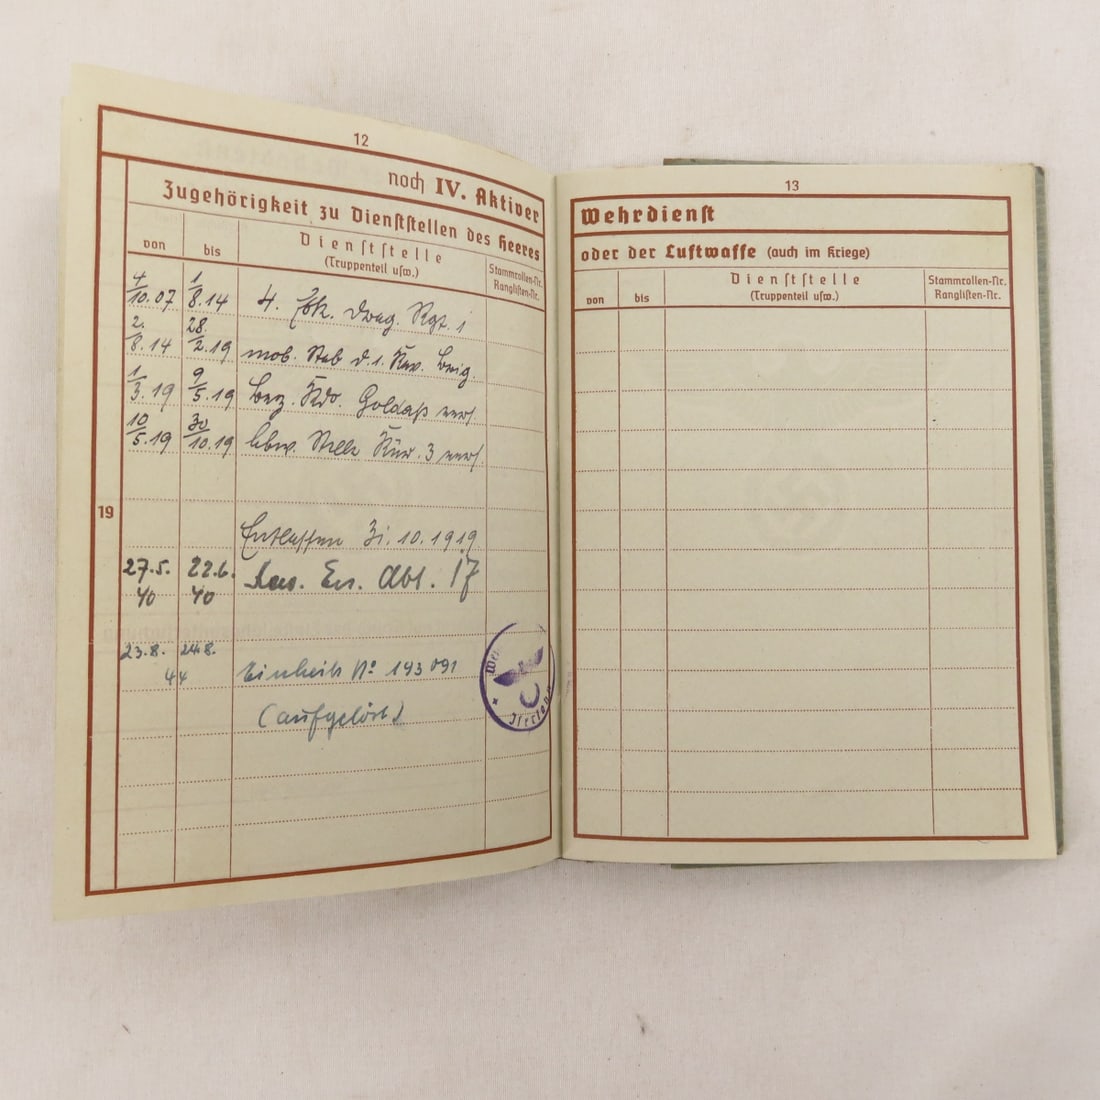 12
noch IV. Aktiver
Zugehörigkeit zu Dienststellen des Heeres
von bis Dienststelle (Truppenteil usw.) Stammrollen-Nr. Ranglisten-Nr.
4/10.07 1/8.14 4. Esk. Drag. Rgt. 1
2./8.14 28/2.19 mob. Stab d. 1. Kav. Brig.
1/3.19 9/5.19 Bez. Kdo. Goldap vers.
10/5.19 30/10.19 Abw. Stelle Kür. 3 vers.
19
Entlassen 31.10.1919
27.5. 22.6. Ers. Abt. 17
40 40
23.8. 24.8. Einheit No 193 091
44
(aufgelöst)
13
Wehrdienst
oder der Luftwaffe (auch im Kriege)
von bis Dienststelle (Truppenteil usw.) Stammrollen-Nr. Ranglisten-Nr.